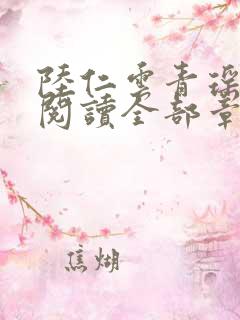 陸仁雲青瑤
閱讀全部章
焦煳